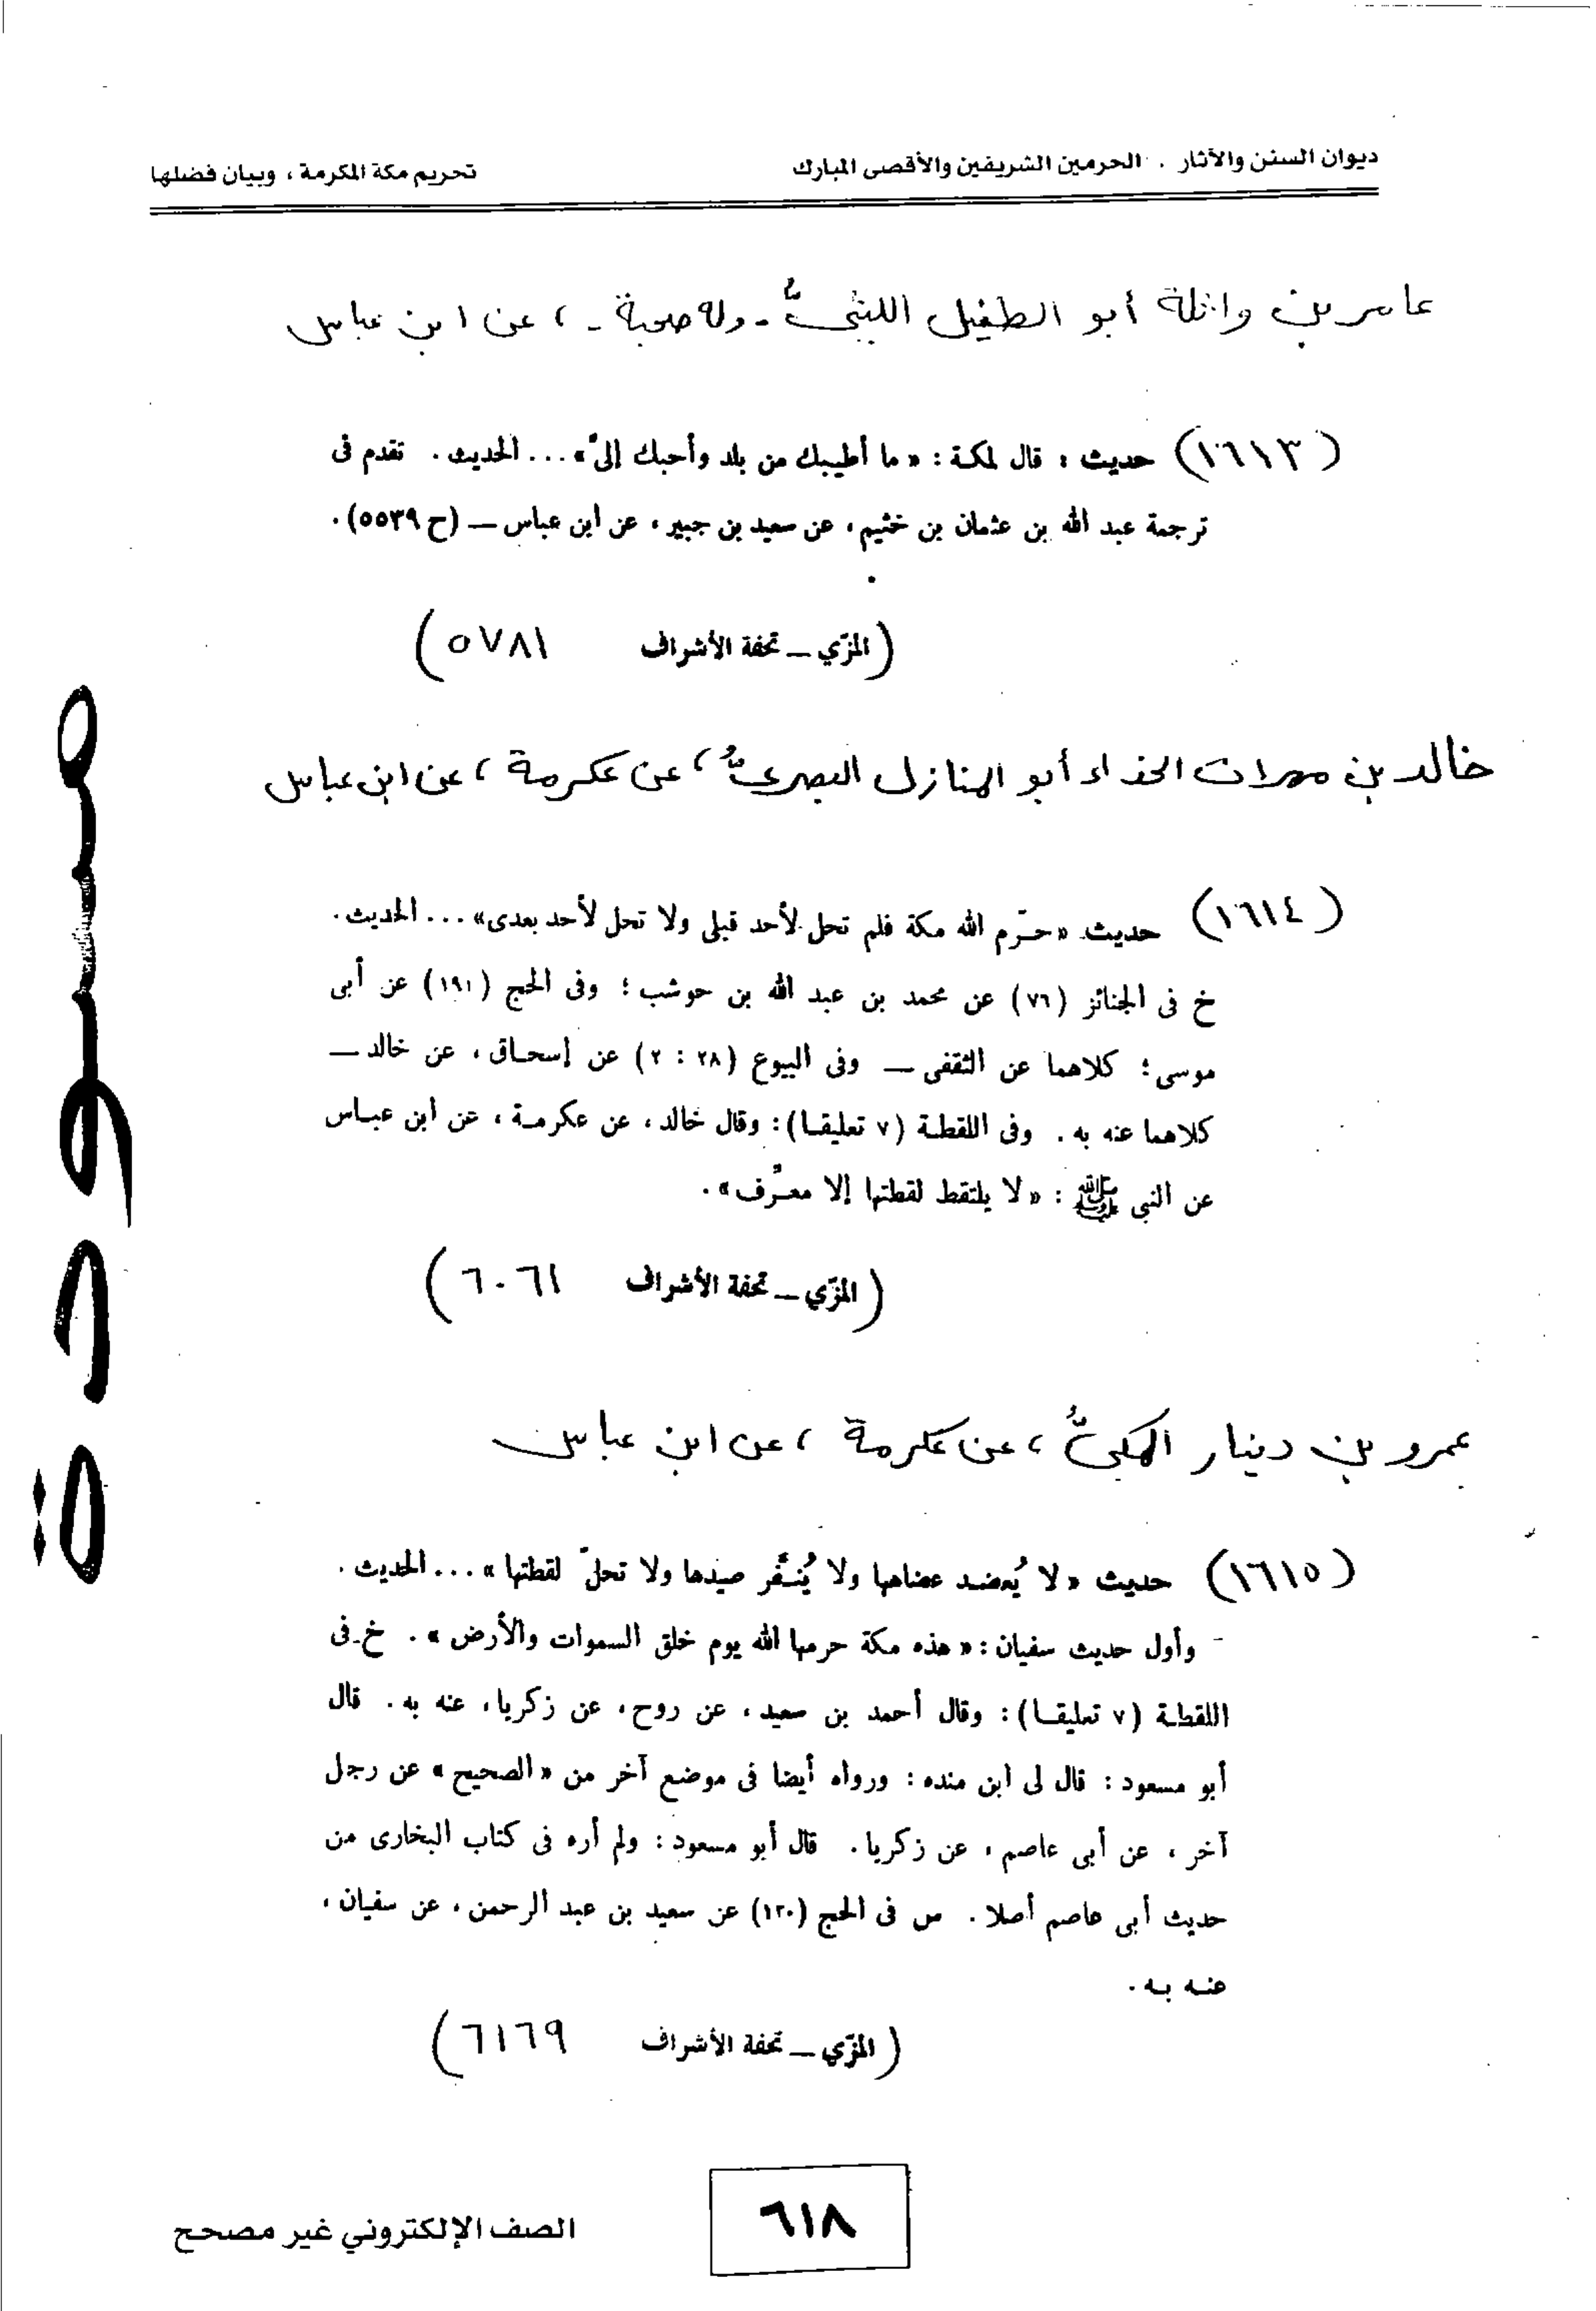 ديوان السنن والآثار . الحرمين الشريفين والأقصى المبارك
تحريم مكة المكرمة ، وبيان فضلها
عامر بن واثلة أبو الطفيل الليثيُّ - وله صحبة - ، عن ابن عباس
(١٦١٣) حديث : قال لمكة : « ما أطيبك من بلد وأحبك إلىّ » ... الحديث . تقدم فى
ترجمة عبد الله بن عثمان بن خثيم ، عن سعيد بن جبير ، عن ابن عباس — (ح ٥٥٣٩) .
(المزّي — تحفة الأشراف ٥٧٨١)
خالد بن مهران الحذاء أبو المنازل البصريُّ ، عن عكرمة ، عن ابن عباس
(١٦١٤) حديث « حرّم الله مكة فلم تحل لأحد قبلى ولا تحل لأحد بعدى» ... الحديث .
خ فى الجنائز (٧٦) عن محمد بن عبد الله بن حوشب ؛ وفى الحج (١٩١) عن أبى
موسى ؛ كلاهما عن الثقفى — وفى البيوع (٢٨ : ٢) عن إسحاق ، عن خالد —
كلاهما عنه به . وفى اللقطة (٧ تعليقا) : وقال خالد ، عن عكرمة ، عن ابن عباس
عن النبى ﷺ : « لا يلتقط لقطتها إلا معرّف » .
(المزّي — تحفة الأشراف ٦٠٦١)
عمرو بن دينار المكيُّ ، عن عكرمة ، عن ابن عباس
(١٦١٥) حديث « لا يُعضد عضاهها ولا يُنفَّر صيدها ولا تحلّ لقطتها » ... الحديث .
- وأول حديث سفيان : « هذه مكة حرمها الله يوم خلق السموات والأرض » . خ فى
اللقطة (٧ تعليقا) : وقال أحمد بن سعيد ، عن روح ، عن زكريا ، عنه به . قال
أبو مسعود : قال لى ابن منده : ورواه أيضا فى موضع آخر من « الصحيح » عن رجل
آخر ، عن أبى عاصم ، عن زكريا . قال أبو مسعود : ولم أره فى كتاب البخارى من
حديث أبى عاصم أصلا . س فى الحج (١٢٠) عن سعيد بن عبد الرحمن ، عن سفيان ،
عنه به .
(المزّي — تحفة الأشراف ٦١٦٩)
مسودة
٦١٨
الصف الإلكتروني غير مصحح